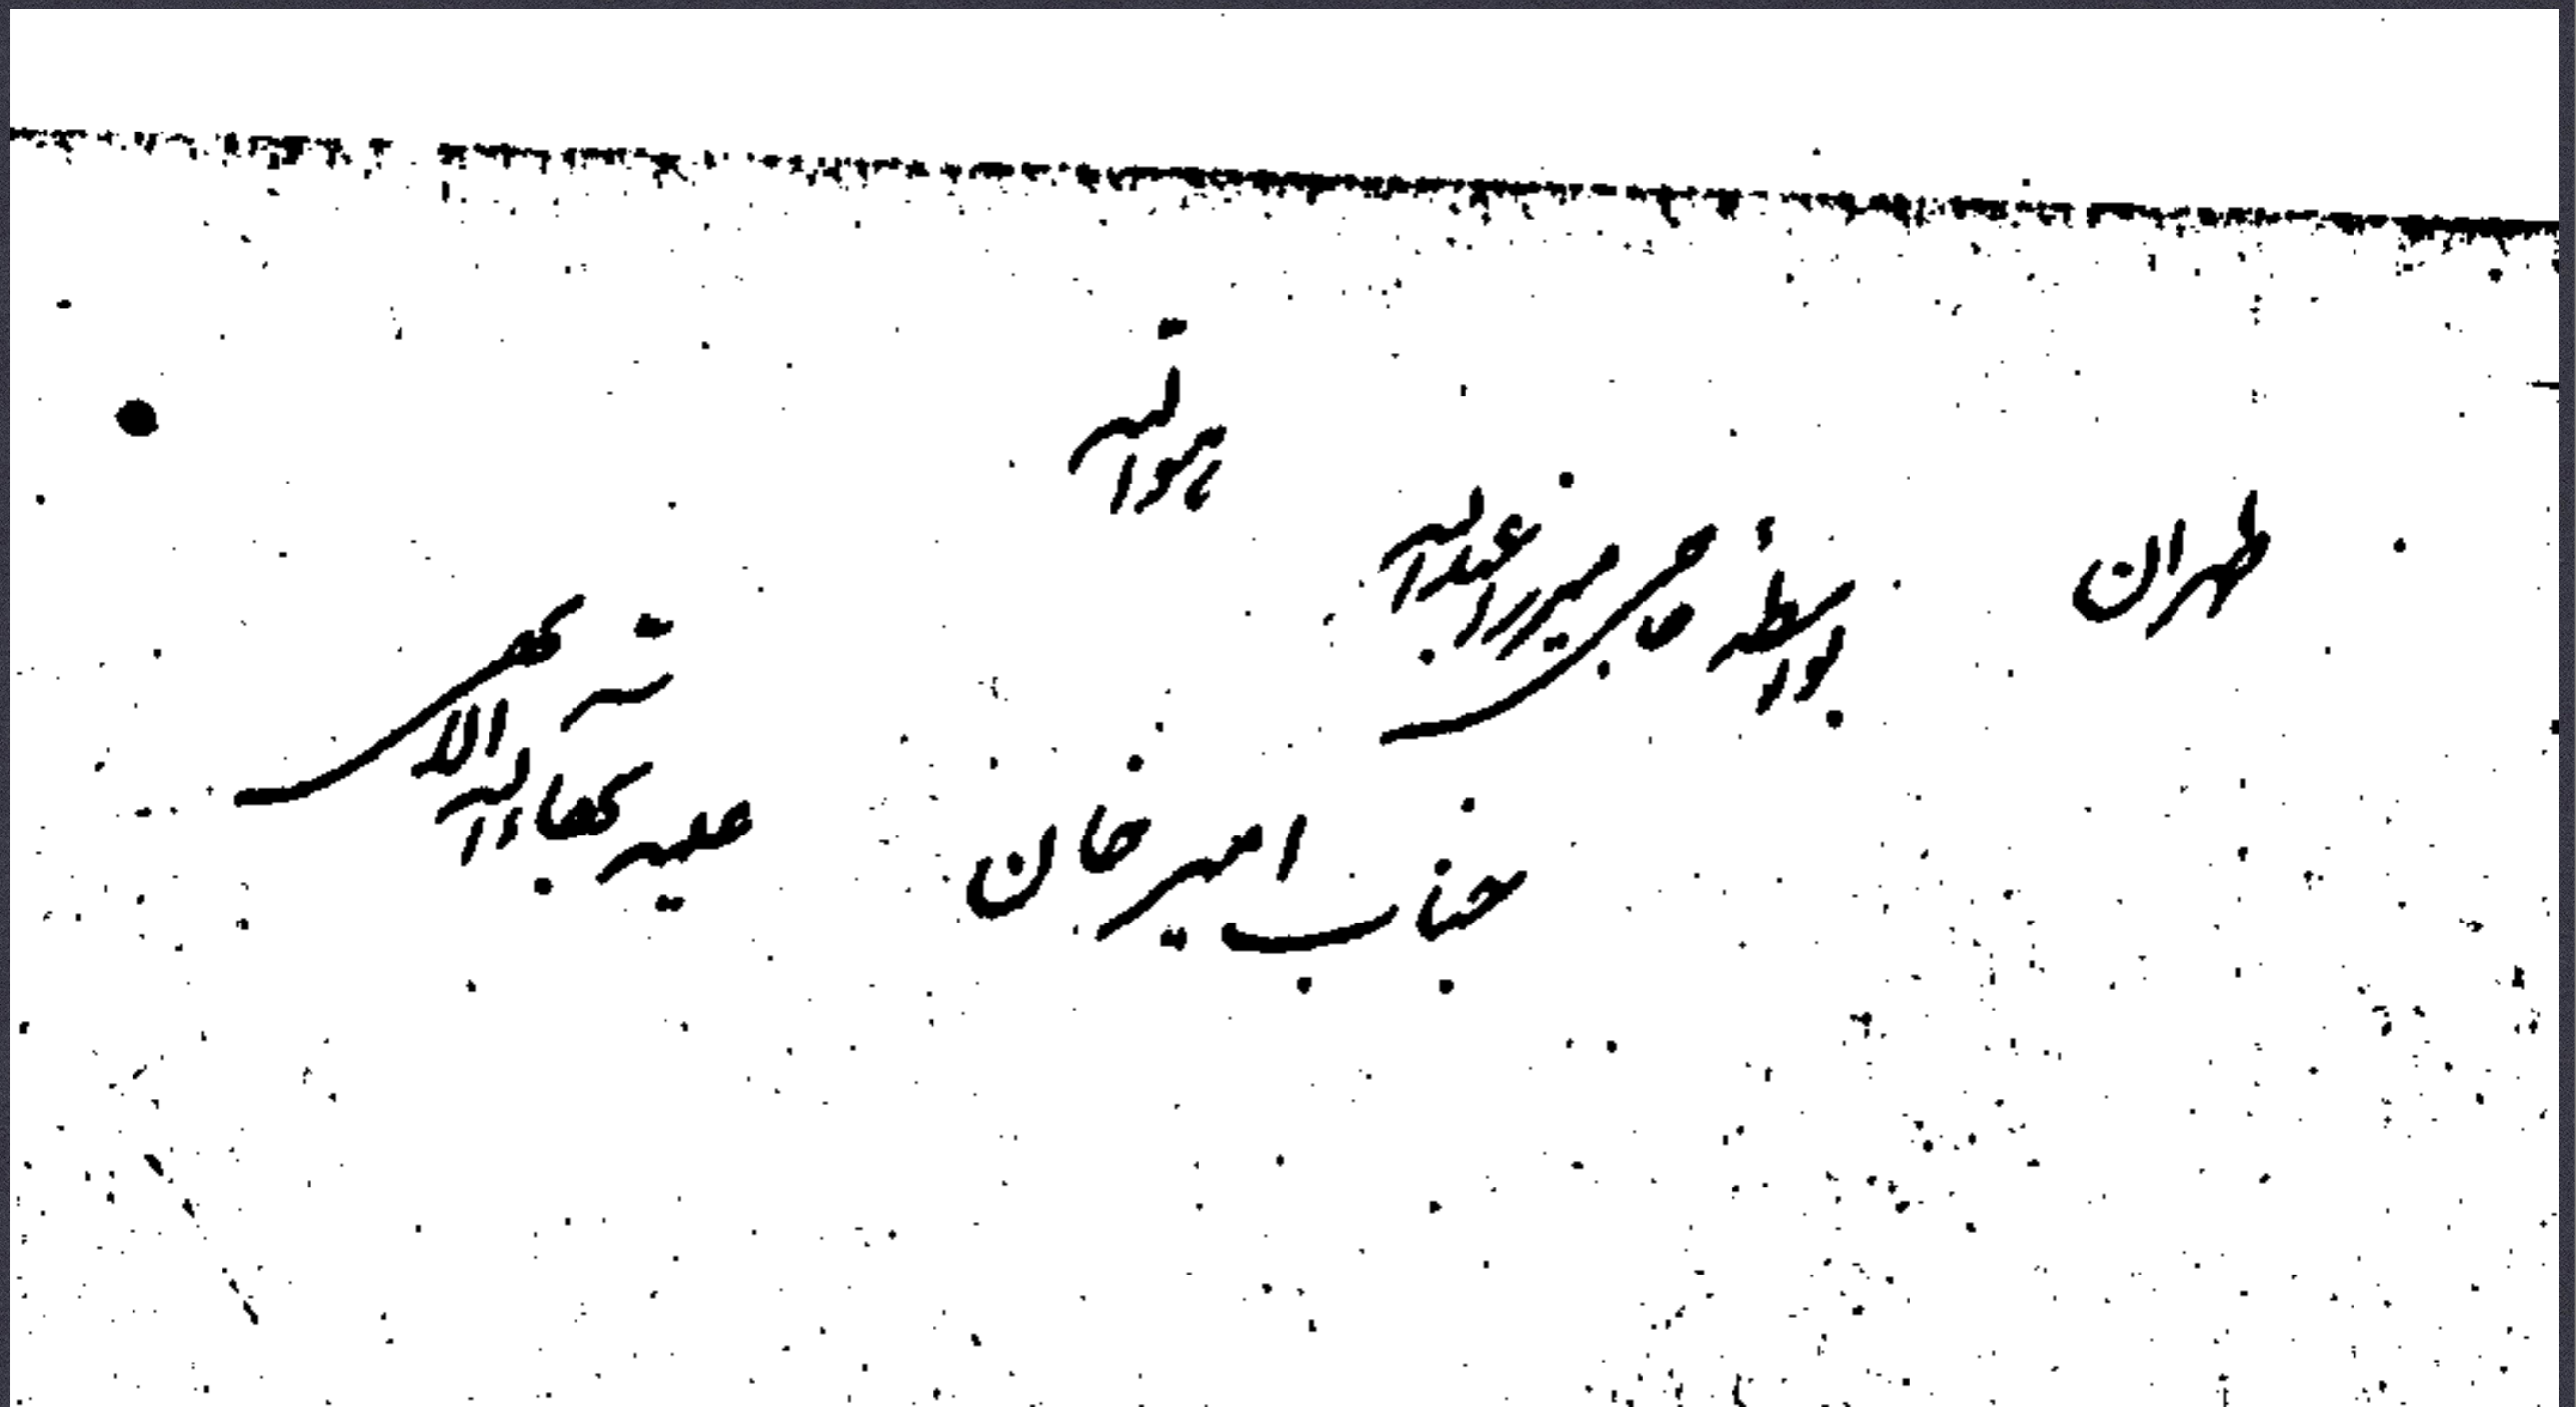 هوالله
طهران
بواسطه حاجی میرزا عبدالله
جناب امیر خان
علیه بهاءالله الابهی